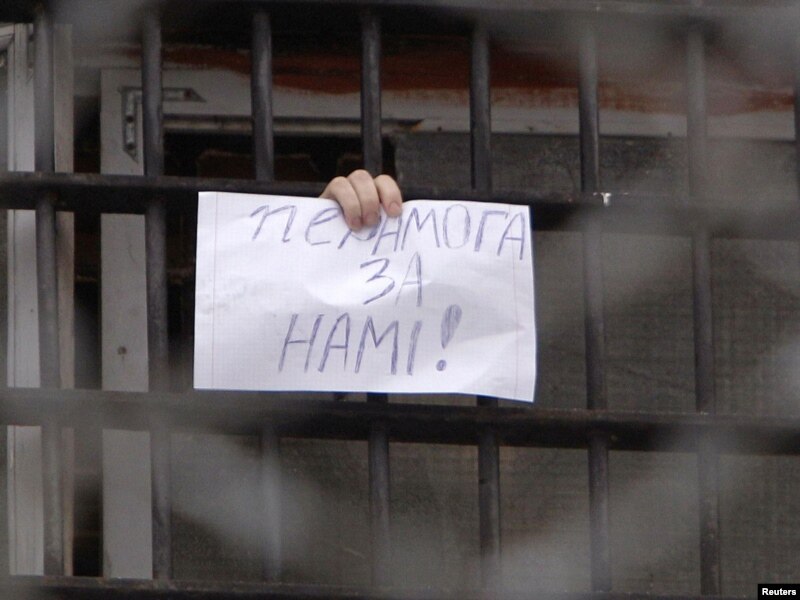 ПЕРАМОГА
ЗА
НАМІ!
Reuters